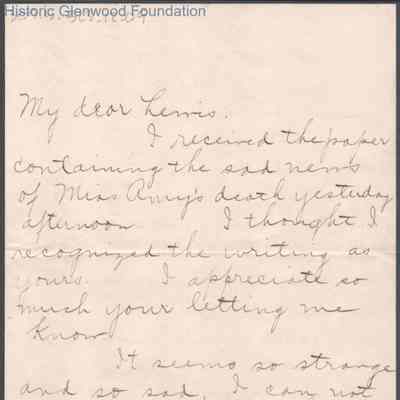 Historic Glenwood Foundation
My dear Lewis.
I received the paper
containing the sad news
of Miss Amy's death yesterday
afternoon I thought I
recognized the writing as
yours. I appreciate so
much your letting me
know.
It seems so strange
and so sad. I can not